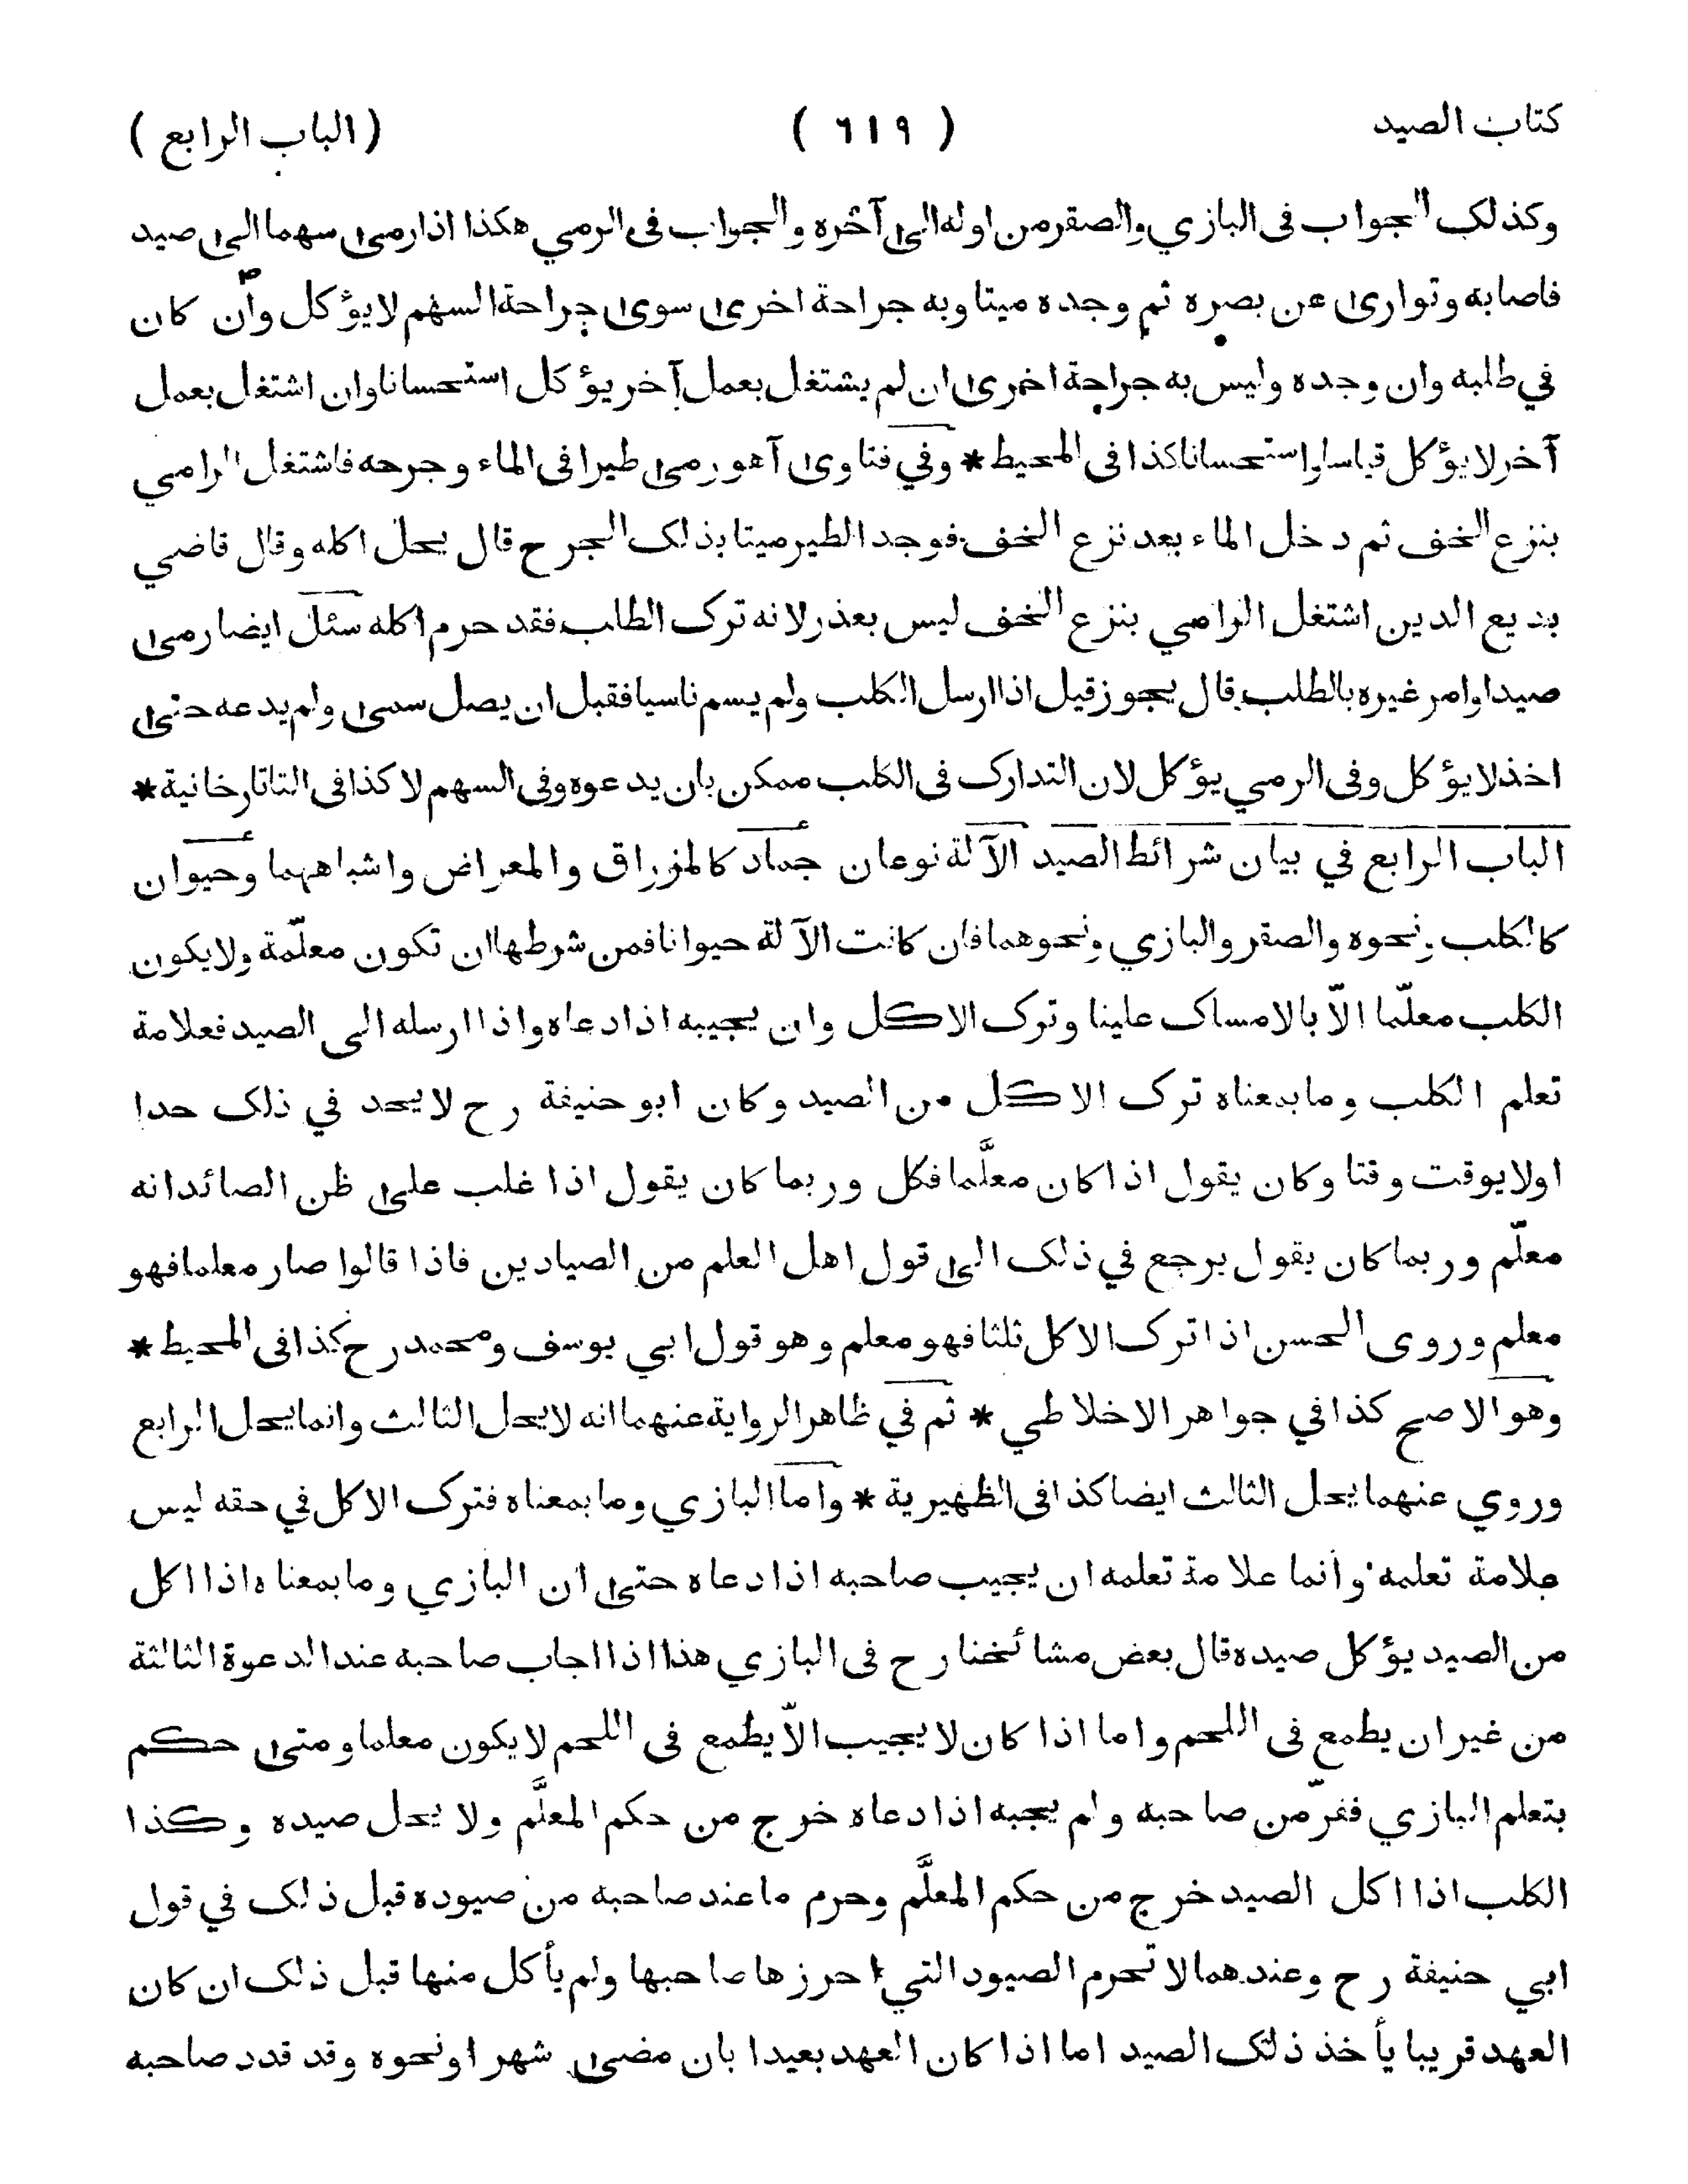 كتاب الصيد ( ٦١٩ ) ( الباب الرابع )
وكذلك الجواب فى البازي والصقر من اوله الى آخره والجواب فى الرمي هكذا اذا رمى سهما الى صيد
فاصابه وتوارى عن بصره ثم وجده ميتا وبه جراحة اخرى سوى جراحة السهم لا يؤكل وان كان
في طلبه وان وجده وليس به جراحة اخرى ان لم يشتغل بعمل آخر يؤكل استحسانا وان اشتغل بعمل
آخر لا يؤكل قياسا واستحسانا كذا فى المحيط * وفي فتاوى آهو رمى طيرا فى الماء وجرحه فاشتغل الرامي
بنزع الخف ثم دخل الماء بعد نزع الخف فوجد الطير ميتا بذلك الجرح قال يحل اكله وقال قاضي
بديع الدين اشتغل الرامي بنزع الخف ليس بعذر لانه ترك الطلب فقد حرم اكله سئل ايضا رمى
صيدا وامر غيره بالطلب قال يجوز قيل اذا ارسل الكلب ولم يسم ناسيا فقبل ان يصل سمى ولم يدعه حتى
اخذ لا يؤكل وفى الرمي يؤكل لان التدارك فى الكلب ممكن بان يدعوه وفى السهم لا كذا فى التاتارخانية *
الباب الرابع في بيان شرائط الصيد الآلة نوعان جماد كالمزراق والمعراض واشباههما وحيوان
كالكلب ونحوه والصقر والبازي ونحوهما فان كانت الآلة حيوانا فمن شرطها ان تكون معلّمة ولا يكون
الكلب معلّما الاّ بالامساك علينا وترك الاكل وان يجيبه اذا دعاه واذا ارسله الى الصيد فعلامة
تعلم الكلب وما بمعناه ترك الاكل من الصيد وكان ابو حنيفة رح لا يحد في ذلك حدا
اولا يوقت وقتا وكان يقول اذا كان معلَّما فكل وربما كان يقول اذا غلب على ظن الصائد انه
معلّم وربما كان يقول يرجع في ذلك الى قول اهل العلم من الصيادين فاذا قالوا صار معلما فهو
معلم وروى الحسن اذا ترك الاكل ثلثا فهو معلم وهو قول ابي يوسف ومحمد رح كذا فى المحيط *
وهو الاصح كذا في جواهر الاخلاطي * ثم في ظاهر الرواية عنهما انه لا يحل الثالث وانما يحل الرابع
وروي عنهما يحل الثالث ايضا كذا فى الظهيرية * واما البازي وما بمعناه فترك الاكل في حقه ليس
علامة تعلمه وانما علامة تعلمه ان يجيب صاحبه اذا دعاه حتى ان البازي وما بمعناه اذا اكل
من الصيد يؤكل صيده قال بعض مشائخنا رح فى البازي هذا اذا اجاب صاحبه عند الدعوة الثالثة
من غير ان يطمع فى اللحم واما اذا كان لا يجيب الاّ يطمع فى اللحم لا يكون معلما ومتى حكم
بتعلم البازي ففرّ من صاحبه ولم يجبه اذا دعاه خرج من حكم المعلَّم ولا يحل صيده وكذا
الكلب اذا اكل الصيد خرج من حكم المعلَّم وحرم ما عند صاحبه من صيوده قبل ذلك في قول
ابي حنيفة رح وعندهما لا تحرم الصيود التي احرزها صاحبها ولم يأكل منها قبل ذلك ان كان
العهد قريبا يأخذ ذلك الصيد اما اذا كان العهد بعيدا بان مضى شهر او نحوه وقد قدد صاحبه